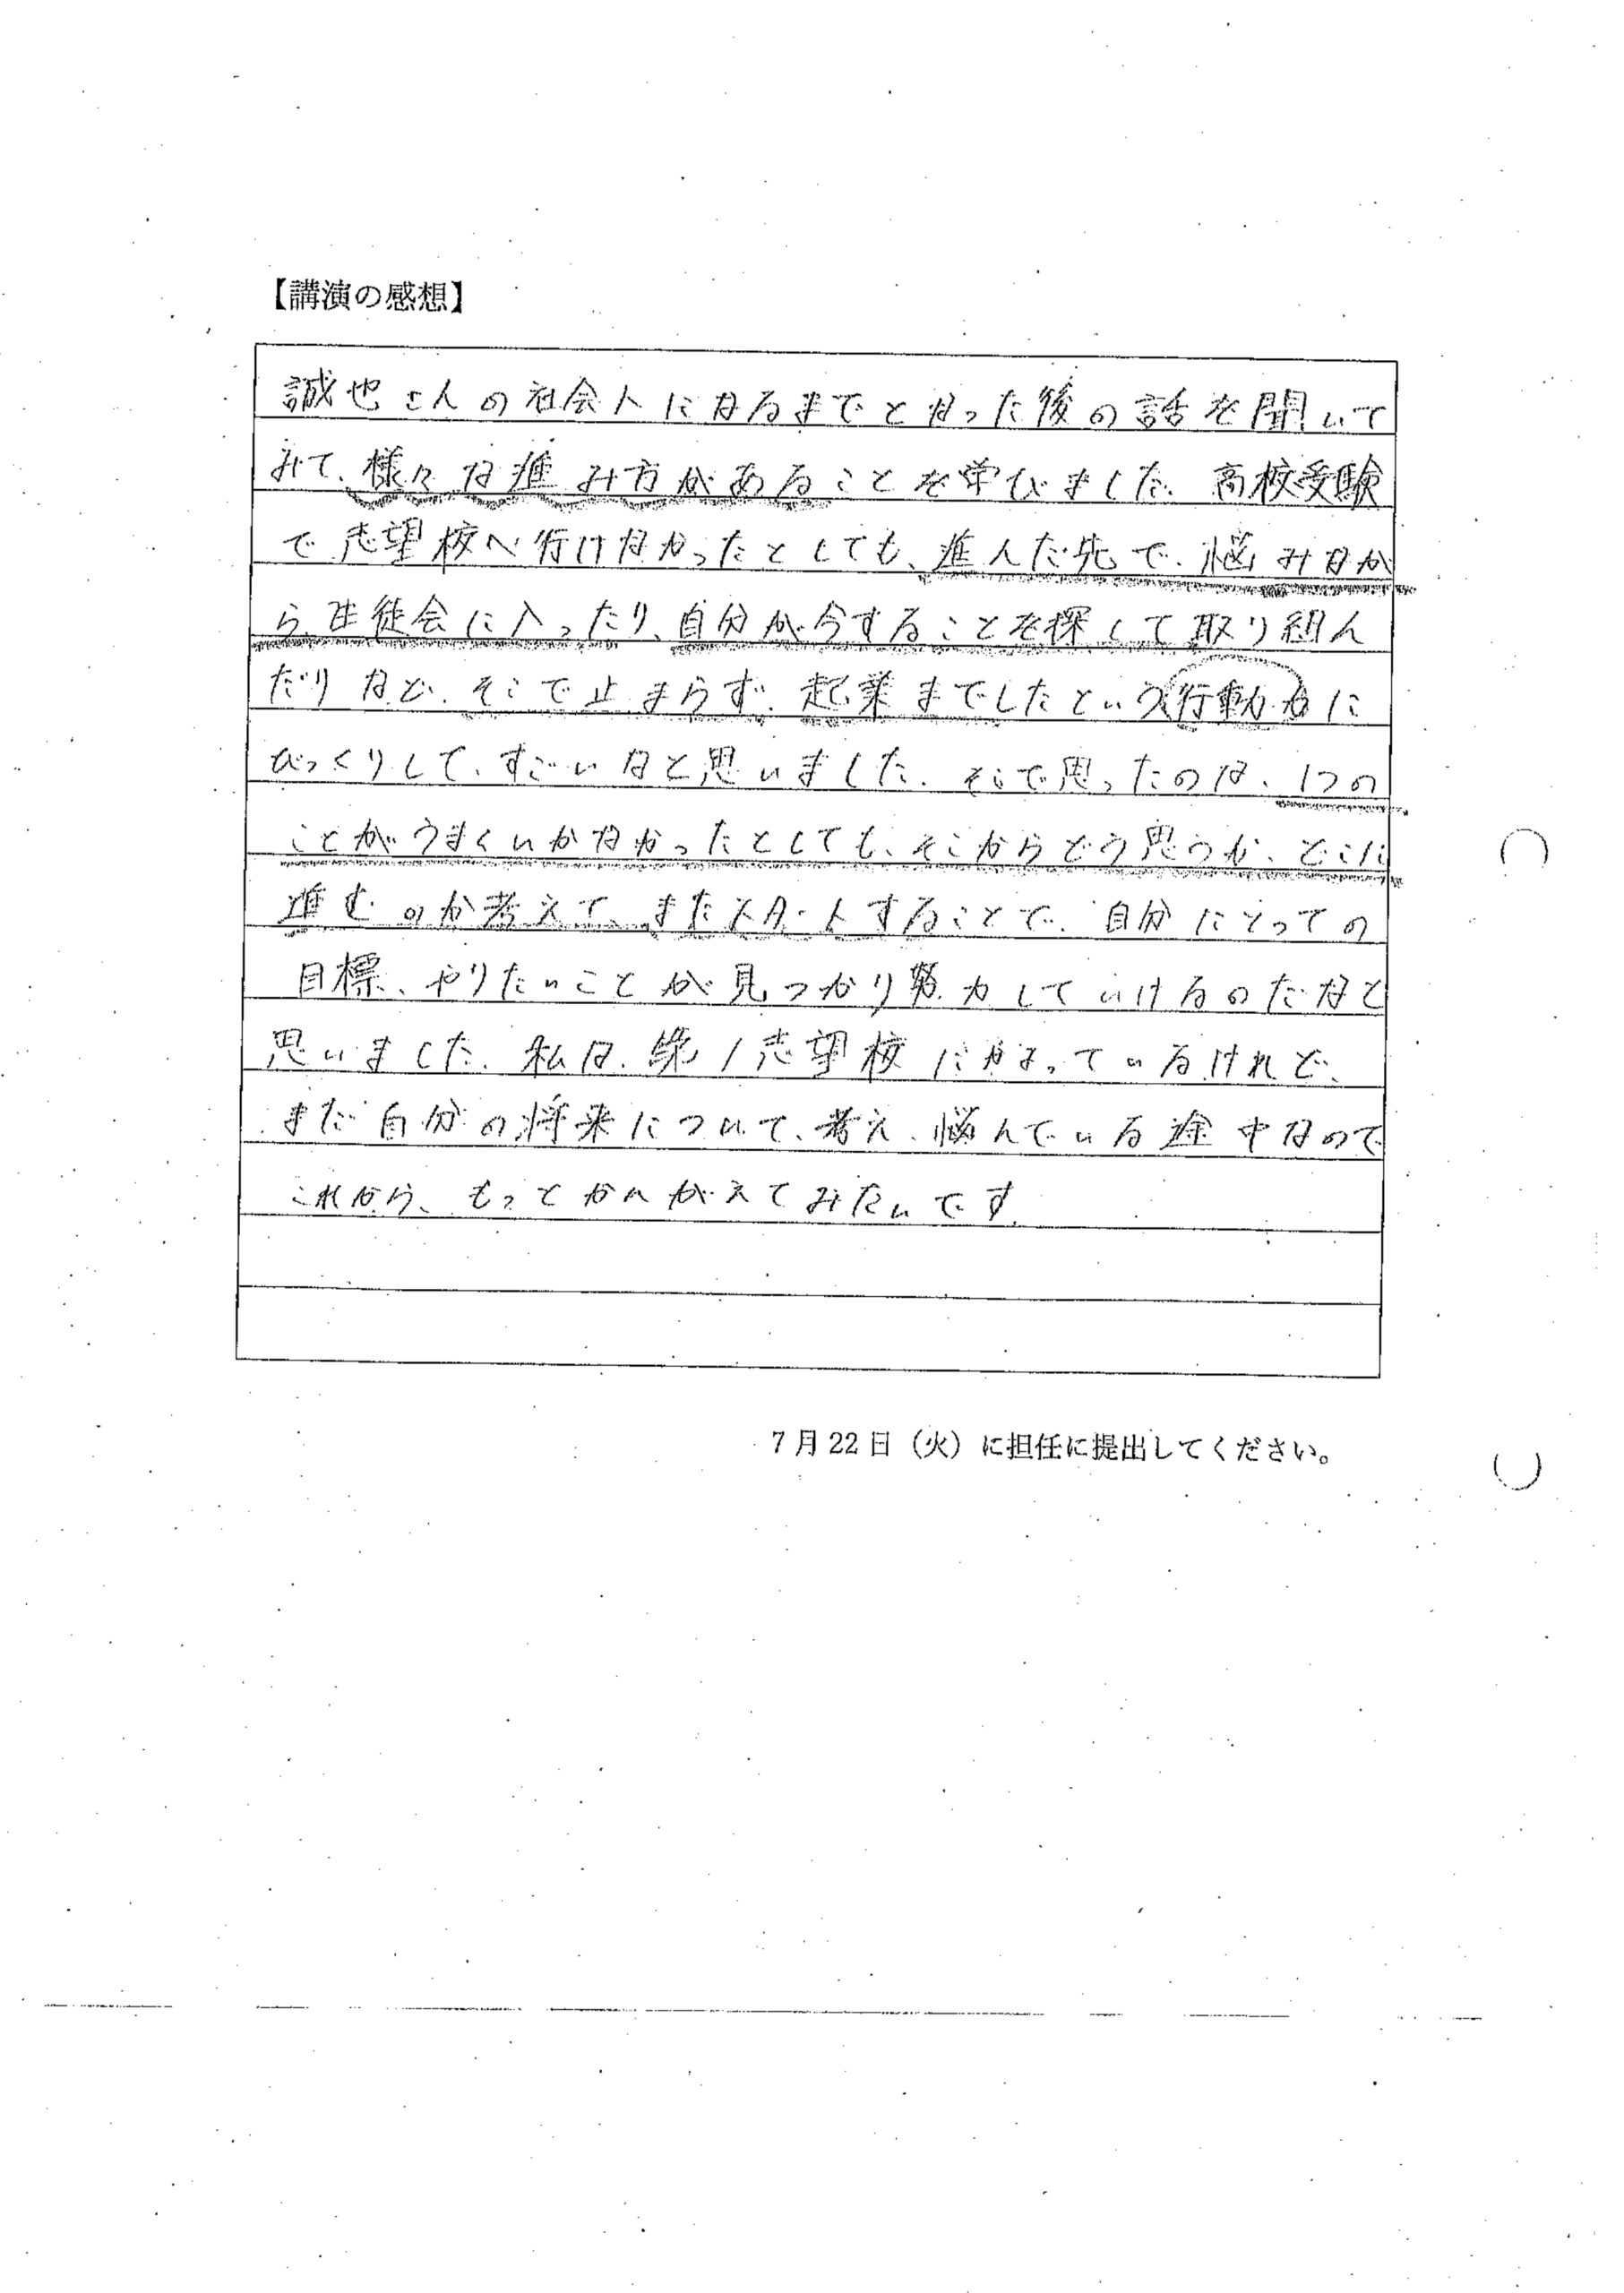 【講演の感想】
誠也さんの社会人になるまでとなった後の話を聞いて
みて、様々な進み方があることを学びました。高校受験
で志望校へ行けなかったとしても、進んだ先で、悩みなが
ら生徒会に入ったり、自分が今することを探して取り組ん
だりなど、そこで止まらず、起業までしたという行動力に
びっくりして、すごいなと思いました。そこで思ったのは、1つの
ことがうまくいかなかったとしても、そこからどう思うか、どこに
進むのか考えて、またスタートすることで、自分にとっての
目標、やりたいことが見つかり努力していけるのだなと
思いました。私は、第1志望校にかよっているけれど、
まだ自分の将来について、考え、悩んでいる途中なので
これから、もっとかんがえてみたいです。
7月22日（火）に担任に提出してください。